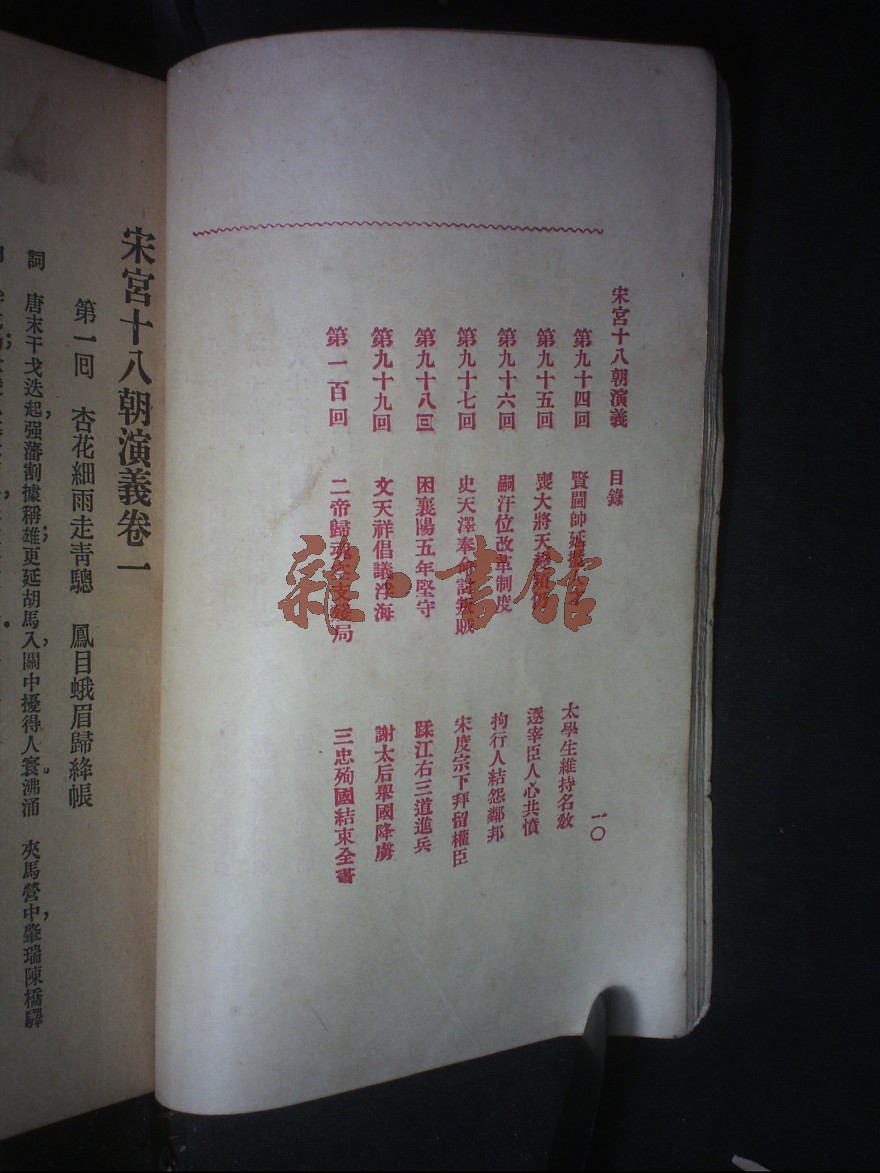 宋宮十八朝演義 目錄 一〇
第九十四回 賢閫帥延 太學生維持名敎
第九十五回 喪大將天 逐宰臣人心共憤
第九十六回 嗣汗位改革制度 拘行人結怨鄰邦
第九十七回 史天澤奉命討叛賊 宋度宗下拜留權臣
第九十八回 困襄陽五年堅守 蹂江右三道進兵
第九十九回 文天祥倡議浮海 謝太后舉國降虜
第一百回 二帝歸 局 三忠殉國結束全書
雜·書館
宋宮十八朝演義卷一
第一回 杏花細雨走靑驄 鳳目蛾眉歸絳帳
詞 唐末干戈迭起,强藩割據稱雄;更延胡馬入關中,擾得人寰沸涌。 夾馬營中肇瑞,陳橋驛